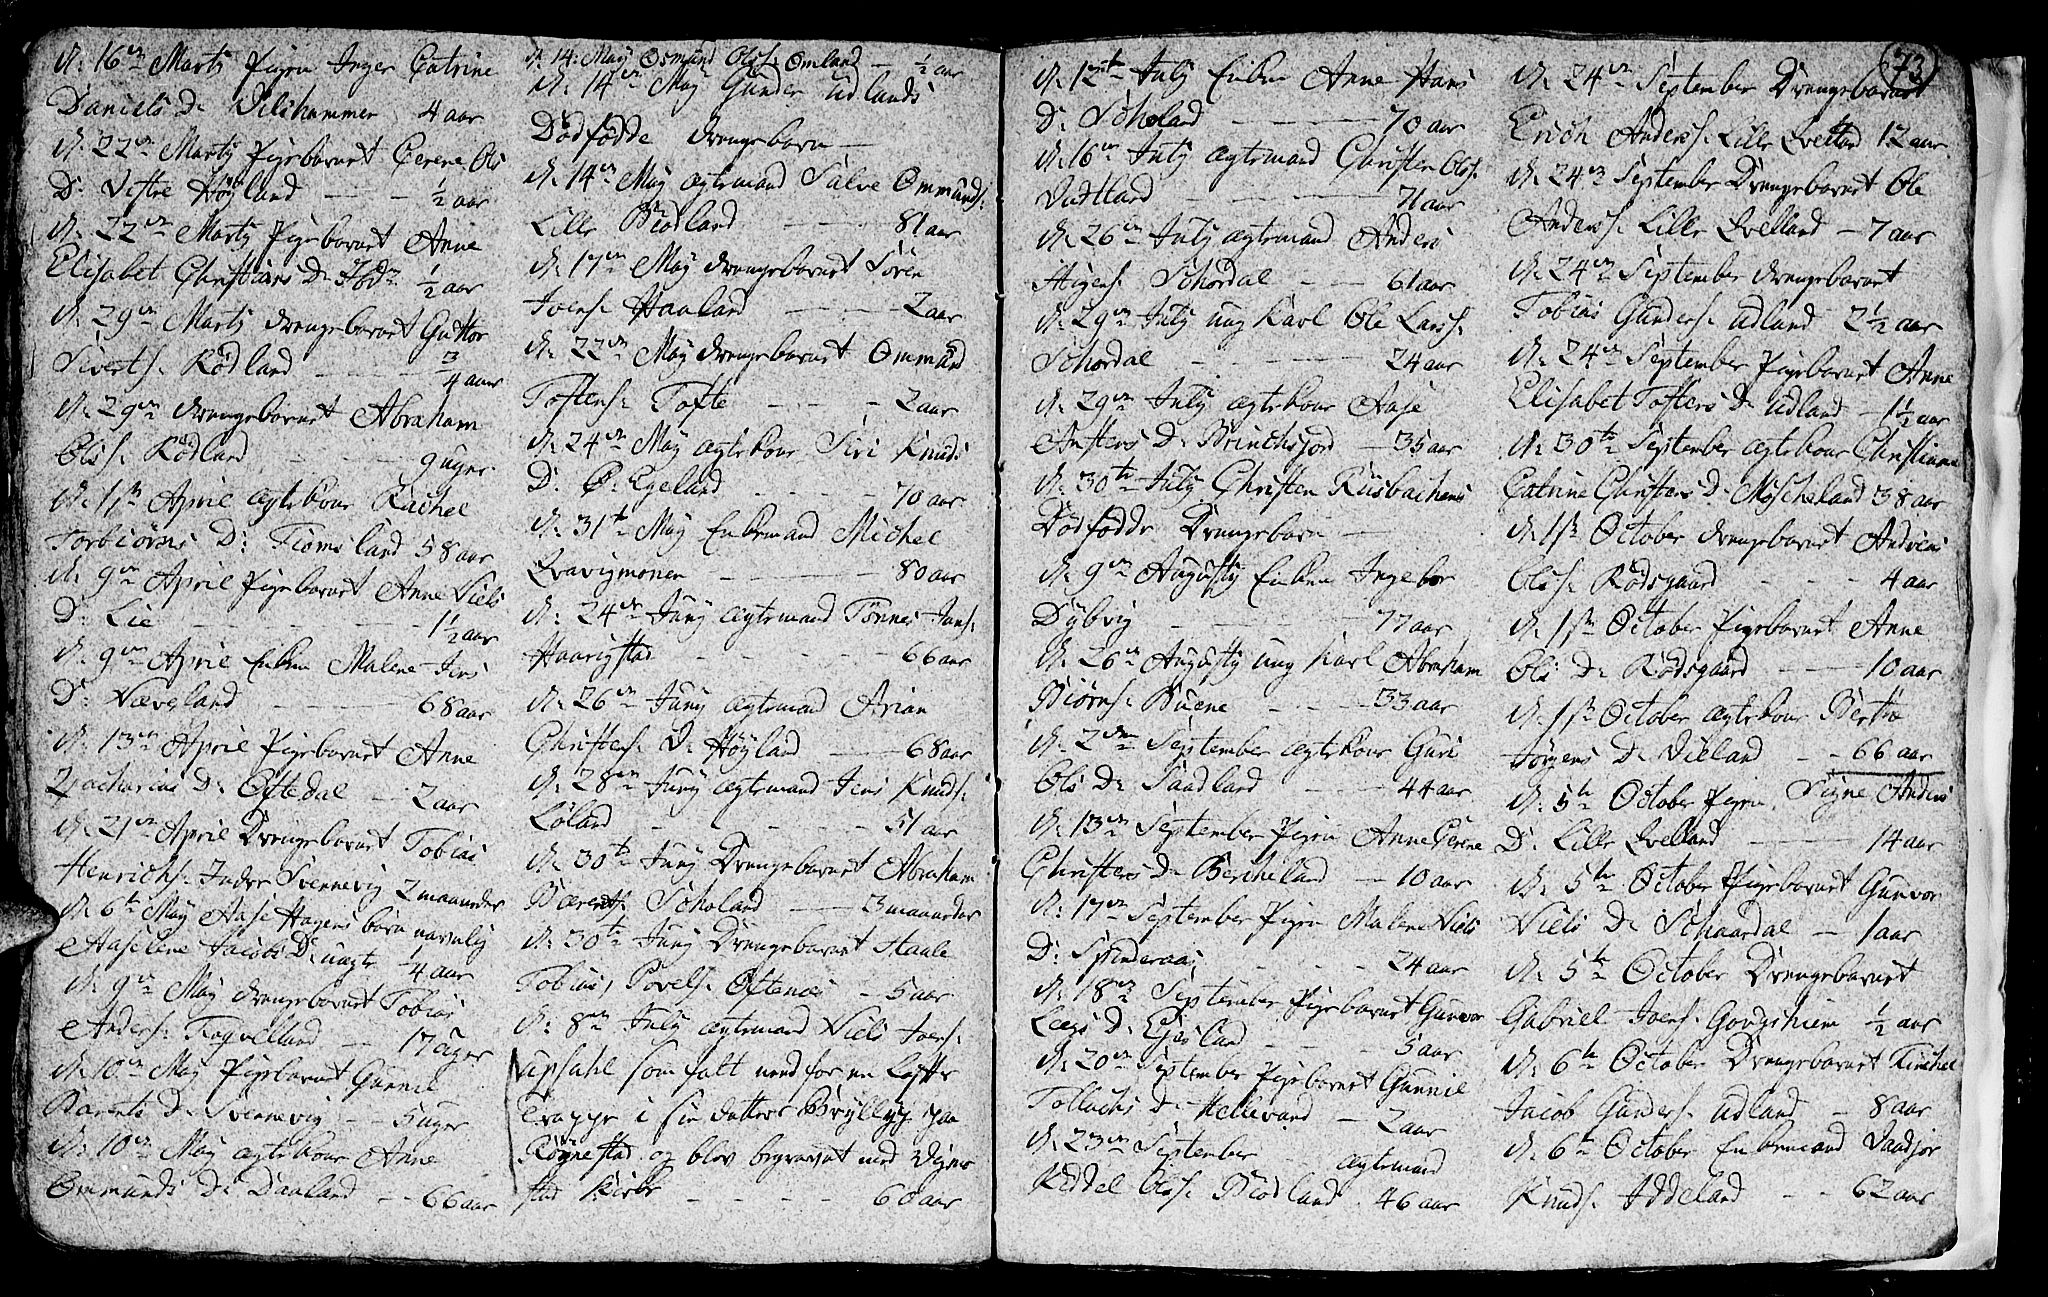 d: 16de Marty Pigen Inger Catrine
Daniels D: Vilshammer 4 aar
d: 22de Marty Pigebarnet Cerene Ols
D: Vestre Höyland — — ½ aar
d: 22de Marty Pigebarnet Anne
Elisabet Christians D: ½ aar
d: 29de Marty drengebarnet Guttor
Siverts: Rödland — — ¾ aar
d: 29de drengebarnet Abraham
Ols: Rödland — — 9 uger
d: 1ste April ægtekone Rachel
Torbiörns D: Fiomsland 58 aar
d: 9de April Pigebarnet Anne Niels
D: Lie — — — 1½ aar
d: 9de April Enken Malene Jens
D: Næveland — — 68 aar
d: 13de April Pigebarnet Anne
Zacharias D: Oftedal — 2 aar
d: 21de April Drengebarnet Tobias
Henrichs: Indre Svennevig 2 maaneder
d: 6te May Aase Hagens barn navnlig
Aaselene Jacobs D: uægte ¼ aar
d: 9de May drengebarnet Tobias
Anders: Fogvelland — 17 uger
d: 10de May Pigebarnet Gunnil
Barents D: Svennevig — 5 uger
d: 10de May ægtekone Anne
Ommunds D: Daaland — 66 aar
d: 14: May Osmund Ols: Omland — ½ aar
d: 14de May Gunder Udlands
Dödfödde drengebarn —
d: 14de May ægtemand Salve Ommunds:
Lille Rödland — — 81 aar
d: 17de May drengebarnet Sören
Joens: Haaland — — 2 aar
d: 22de May drengebarnet Ommund
Tostens: Tofte — — 2 aar
d: 24de May ægtekone Siri Knuds
D: Ö: Egeland — — 70 aar
d: 31te May Enkemand Michel
Qvavigmonen — — 80 aar
d: 24de Juny ægtemand Tönnes Jans:
Haarigstad — — — 66 aar
d: 26de Juny ægtemand Arian
Christens: V: Höyland — 68 aar
d: 28de Juny ægtemand Jens Knuds:
Löland — — — 51 aar
d: 30te Juny Drengebarnet Abraham
Bærents: Scholand — 3 maaneder
d: 30te Juny Drengebarnet Staale
Tobias, Povels: Oftenes — 5 aar
d: 8de July ægtemand Niels Joens:
Upsahl som falt ned for en Lofts
trappe i sin datters Bryllup paa
Röynestad og blev begravet ved Vigmo
stad Kirke — — 60 aar
73
d: 12te July Enken Anne Hans
D: Scholand — — 70 aar
d: 16de July ægtemand Christen Ols:
Vatland — — 71 aar
d: 26de July ægtemand Anders
Aigens: Schordal — — 61 aar
d: 29de July ung Karl Ole Lars:
Schordal — — — 24 aar
d: 29de July ægtekone Aase
Austens D: Brinchsjord — 35 aar
d: 30te July Christen Risbachens
Dödfödde Drengebarn —
d: 9de Augusty Enken Ingebor
Dybvig — — — 77 aar
d: 26de Augusty ung Karl Abraham
Biörns: Buene — — 33 aar
d: 2den September ægtekone Guri
Ols D: Sandland — — 44 aar
d: 13de September Pigen Anne Cerene
Christens D: Bercheland — 10 aar
d: 17de September Pigen Malene Niels
D: Spinderaas — — 24 aar
d: 18de September Pigebarnet Gunvor
Lægs D: Egesland — — 5 aar
d: 20de September Pigebarnet Gunnil
Tollachs D: Hellevand — 2 aar
d: 23de September ægtemand
Keddel Ols: Rödland — 46 aar
d: 24de September Drengebarnet
Erich Anders: Lille Qvelland 12 aar
d: 24de September Drengebarnet Ole
Anders: Lille Qvelland — 7 aar
d: 24de September drengebarnet
Tobias Gunders: Udland 2½ aar
d: 24de September Pigebarnet Anne
Elisabet Tostens D: Udland — 1½ aar
d: 30te September ægtekone Christianne
Catrine Christens D: Moscheland 38 aar
d: 1ste October drengebarnet Andreas
Ols: Rödsgaard — — 4 aar
d: 1ste October Pigebarnet Anne
Ols D: Rödsgaard — — 10 aar
d: 1ste October ægtekone Berthe
Jörgens D: Vieland — — 66 aar
d: 5te October Pigen Signe Anders
D: Lille Qvelland — — 14 aar
d: 5te October Pigebarnet Gunvor
Niels D: Schaardal — 1 aar
d: 5te October Drengebarnet
Gabriel Joens: Gongshiem ½ aar
d: 6te October Drengebarnet
Jacob Gunders: Udland — 8 aar
d: 6te October Enkemand Vaadjor
Knuds: Addeland — — 62 aar